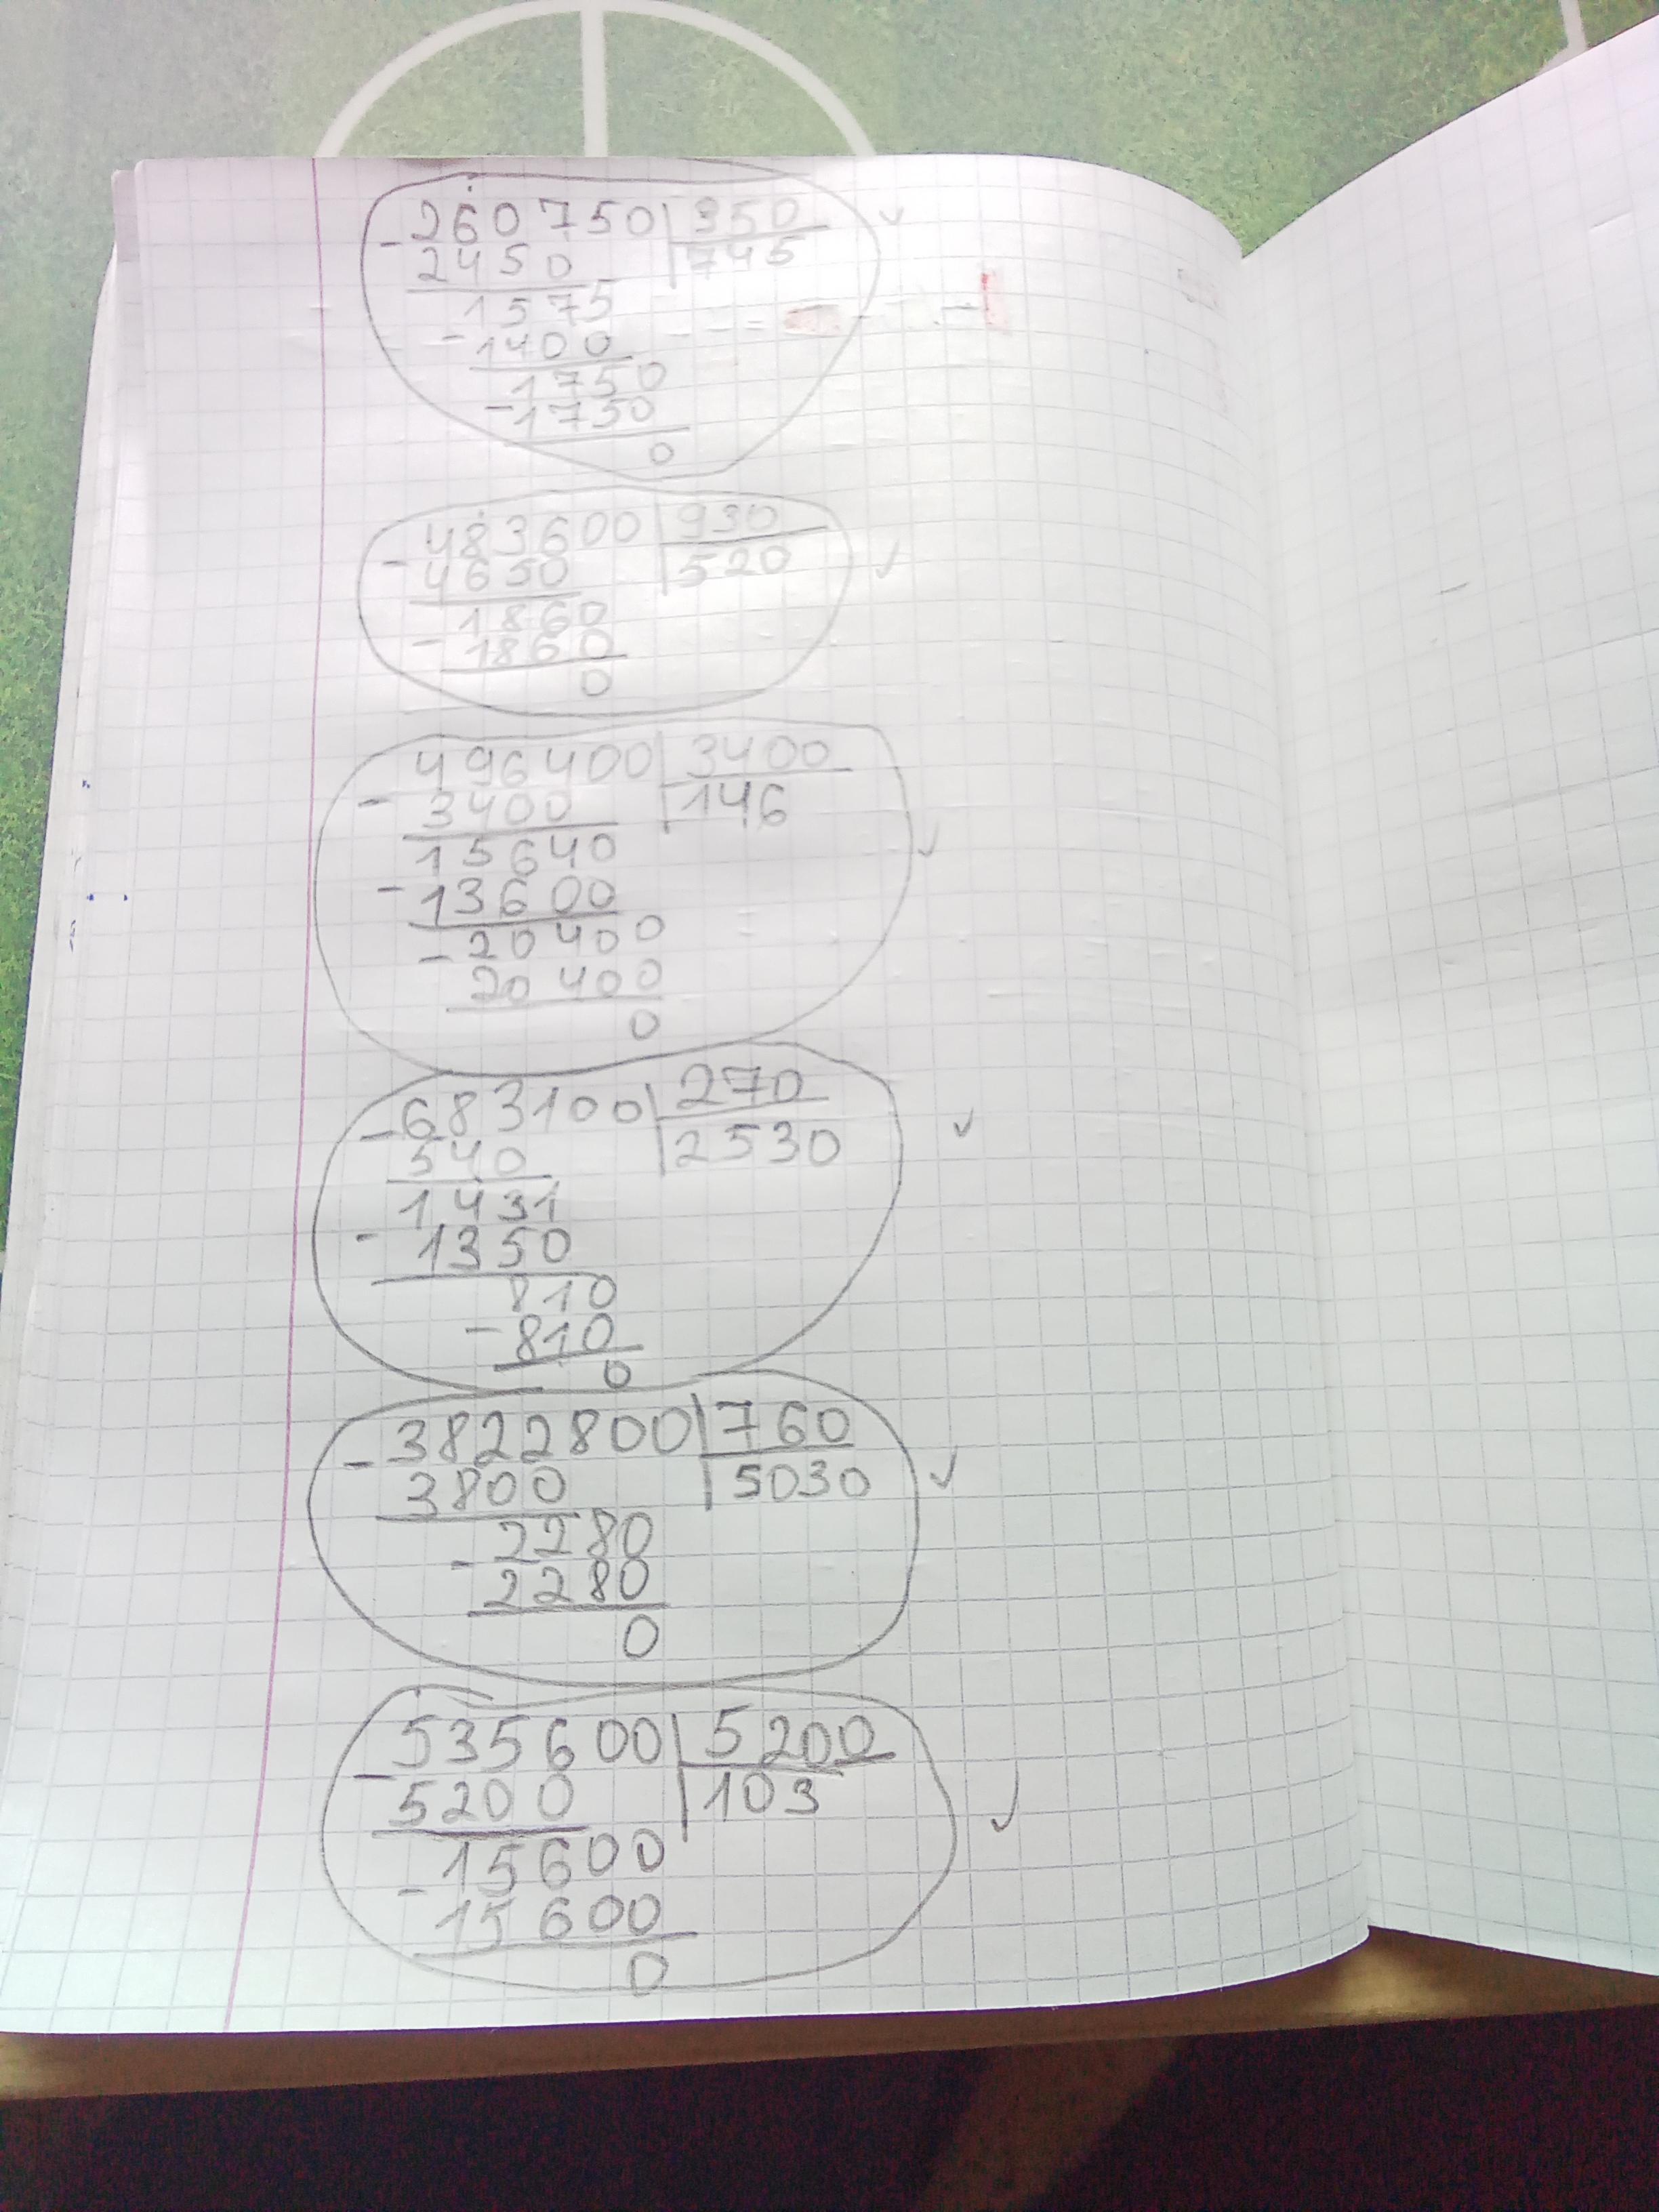 - 260750 | 350
2450 | 745
1575
- 1400
1750
- 1750
0
- 483600 | 930
4650 | 520
1860
- 1860
0
- 496400 | 3400
3400 | 146
15640
- 13600
- 20400
20400
0
- 683100 | 270
540 | 2530
1431
- 1350
810
- 810
0
- 3822800 | 760
3800 | 5030
- 2280
2280
0
- 535600 | 5200
5200 | 103
- 15600
15600
0